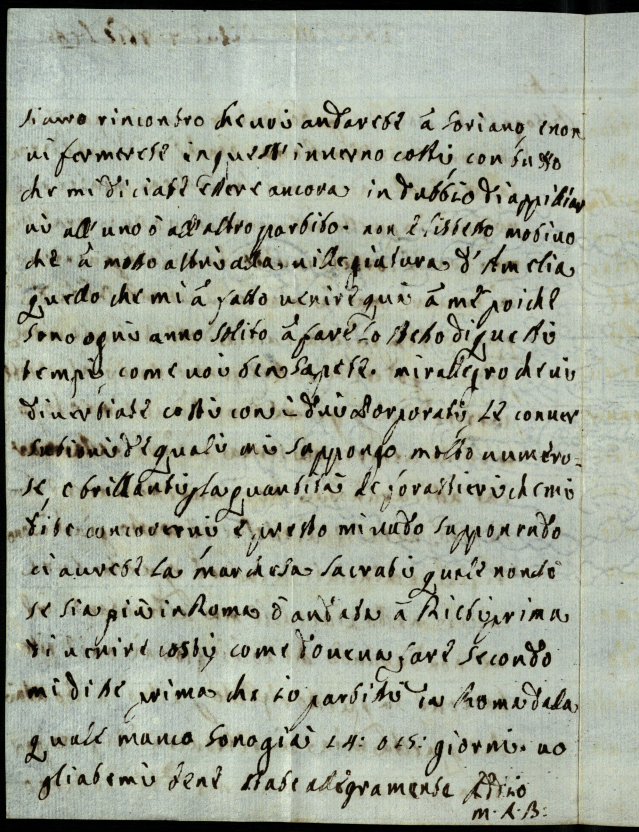 siamo rincontro che voi andarete à Soriano, e non
vi fermerete in quest'inverno costì con tutto
che mi diciate essere ancora in dubbio di appigliar
vi all'uno ò all'altro partito. non è l'istesso motivo
che à mosso altri alla villegiatura d'Amelia
quello che mi à fatto venire quà à me poiche
sono ogni anno solito à fare lo stesso di questi
tempi come voi ben sapete. mi rallegro che vi
divertiate costì con i due Porporati, le conver
sationi de quali mi suppongo molto numero=
se, e brillanti, la quantità de forastieri che mi
dite concorervi e presto mi vado supponendo
ci avrete la Marchesa Sacrati quale non sò
se sia più in Roma ò andata à Rieti prima
di venire costì, come doveva fare secondo
mi dite prima che io partissi da Roma dala
quale manco sono già 14: o 15: giorni. vo
gliatemi bene state allegramente Addio
M. A. B: